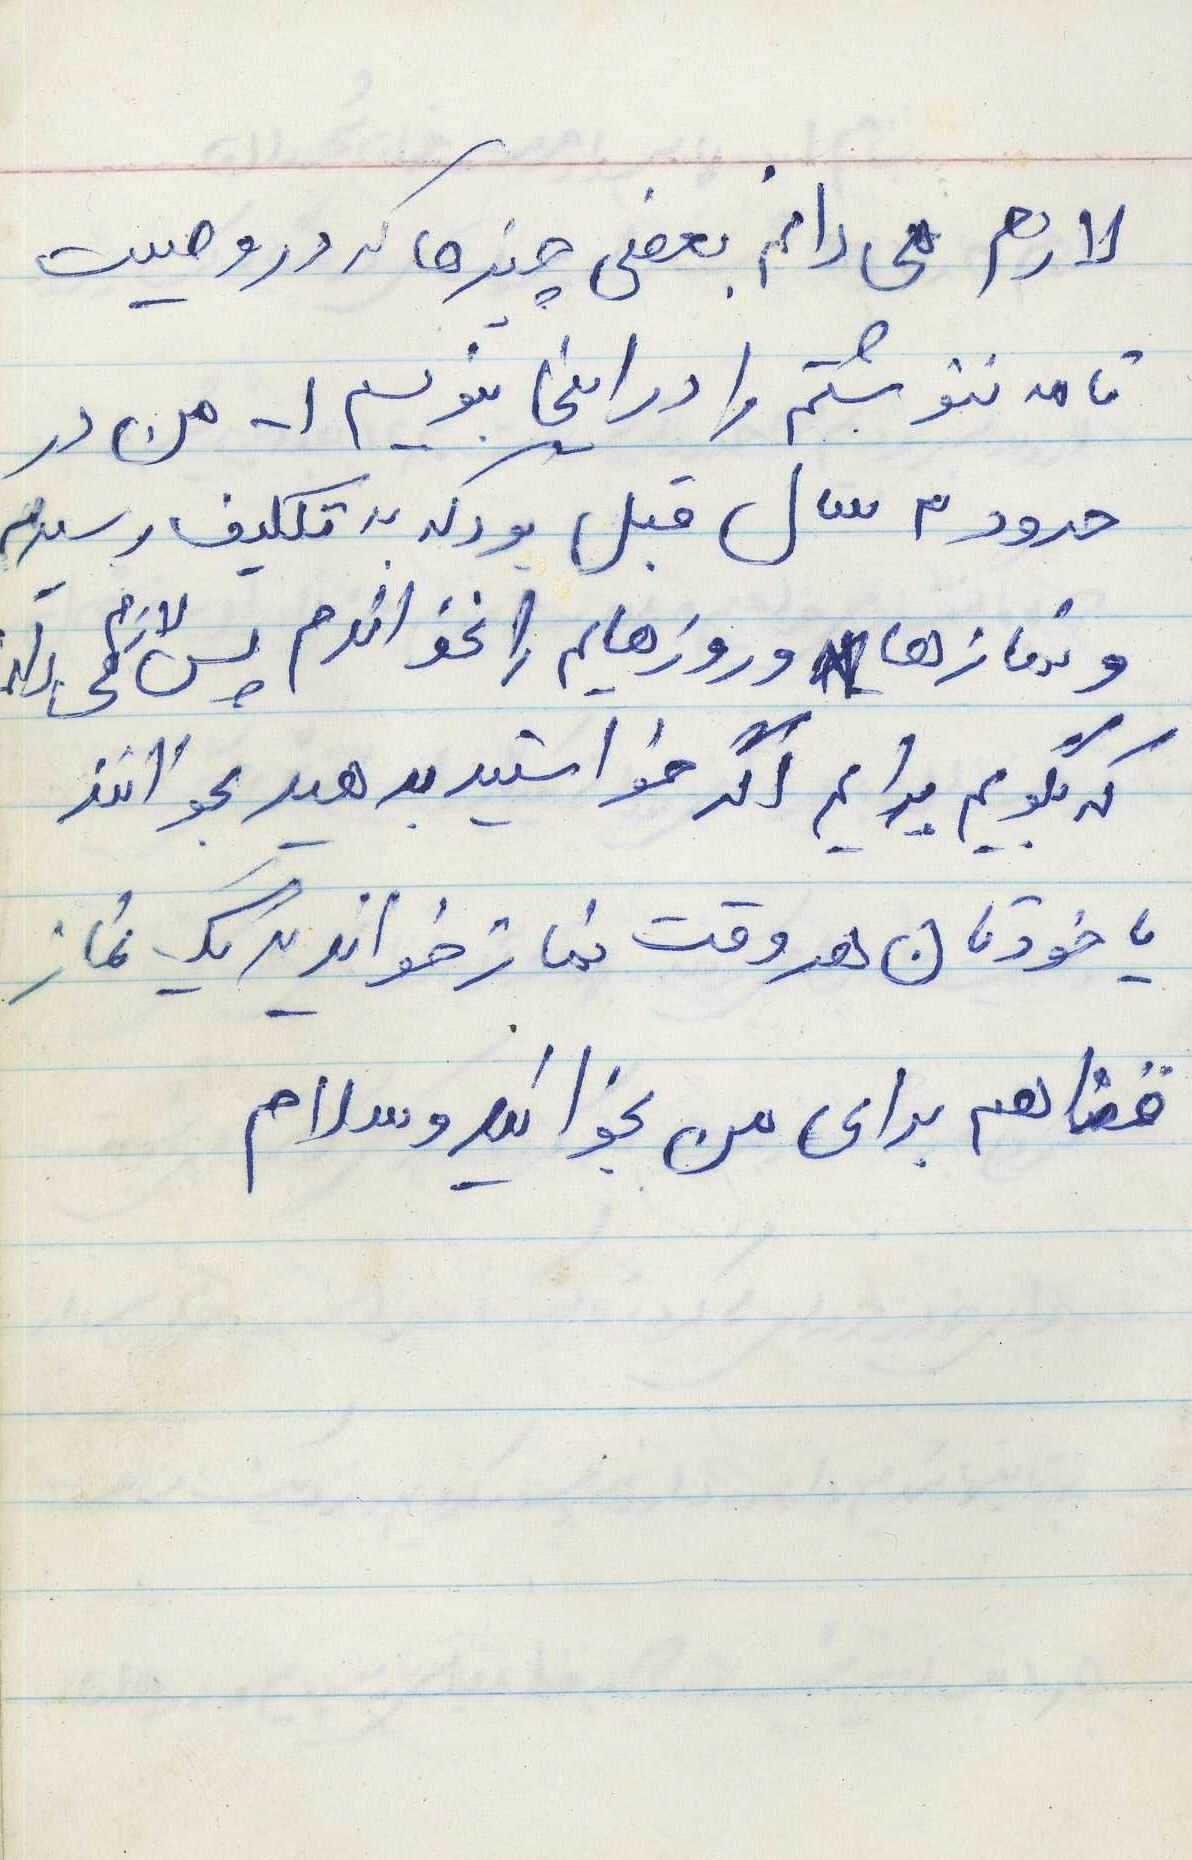 لازم می دانم بعضی چیزها که در وصیت
نامه ننوشتم را در اینجا بنویسم ۱- من در
حدود ۳ سال قبل بود که به تکلیف رسیدم
و نمازها و روزهایم را نخواندم پس لازم می دانم
که بگویم برایم اگر خواستید بدهید بخوانند
یا خودتان هر وقت نماز خواندید یک نماز
قضا هم برای من بخوانید وسلام